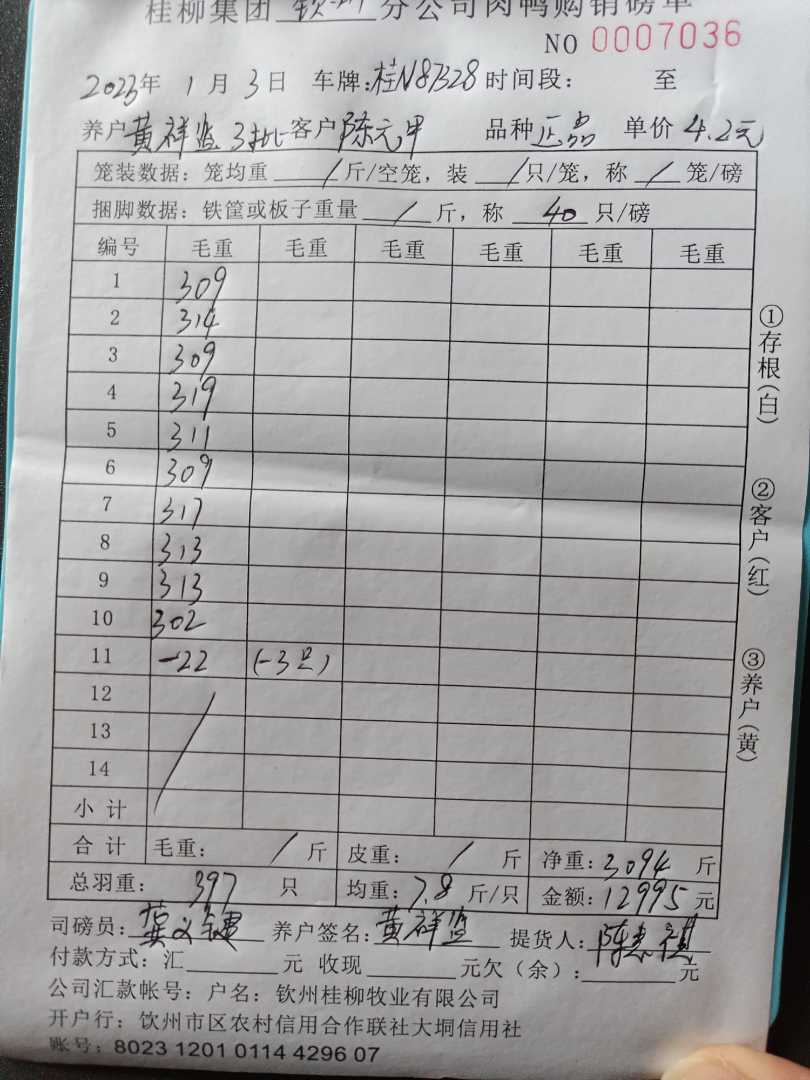 桂柳集团 钦州 分公司肉鸭购销磅单
NO 0007036
2023年 1月3日 车牌:桂N87328 时间段: 至
养户黄祥监3批 客户陈元甲 品种正品 单价4.2元
笼装数据:笼均重 / 斤/空笼,装 / 只/笼,称 / 笼/磅
捆脚数据:铁筐或板子重量 / 斤,称 40 只/磅
编号 毛重 毛重 毛重 毛重 毛重 毛重
1 309
2 314
3 309
4 319
5 311
6 309
7 317
8 313
9 313
10 302
11 -22 (-3只)
12
13
14
小计
合计 毛重: / 斤 皮重: / 斤 净重:3094 斤
总羽重: 397 只 均重:7.8 斤/只 金额:12995元
司磅员: 养户签名:黄祥监 提货人:
付款方式:汇 元 收现 元欠(余): 元
公司汇款帐号:户名:钦州桂柳牧业有限公司
开户行:钦州市区农村信用合作联社大垌信用社
账号:8023 1201 0114 4296 07
①存根(白)
②客户(红)
③养户(黄)